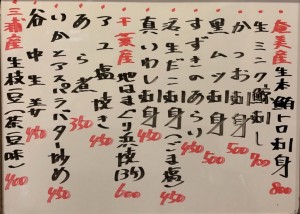 奄美産 生本鮪トロ刺身 800
〃 生ミンク鯨刺し 700
〃 かつお刺身 500
〃 黒ムツ刺身 500
〃 すずきのあらい 450
〃 名生だこ刺身(ごま塩) 450
〃 真いわし刺身
千葉産 地はまぐり浜焼(3ヶ) 600
〃 アユ塩焼き 450
〃 あら煮 350
〃 いかとアスパラバター炒め 450
〃 谷中生姜 450
三浦産 生枝豆(茶豆味) 400